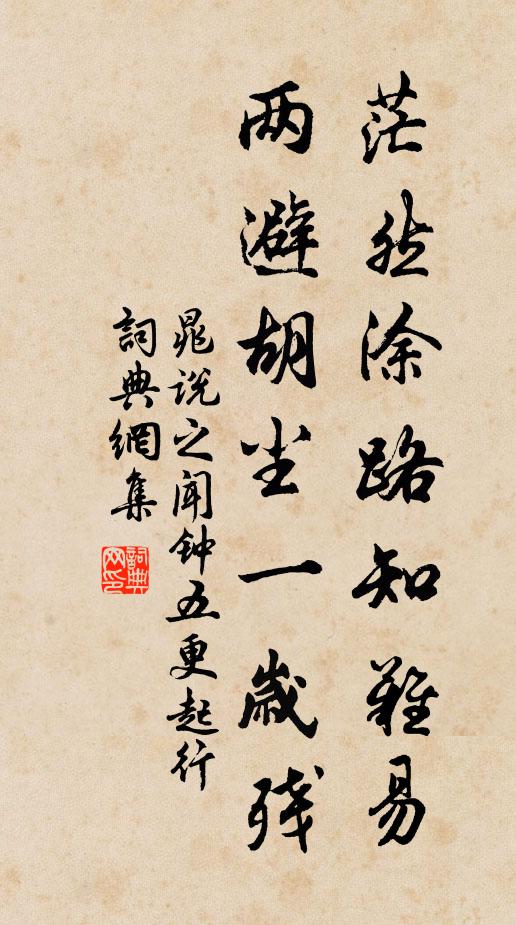 茫然涂路知難易
两避胡尘一歲残
晁说之闻钟五更起行
詞典網集
詞典網印